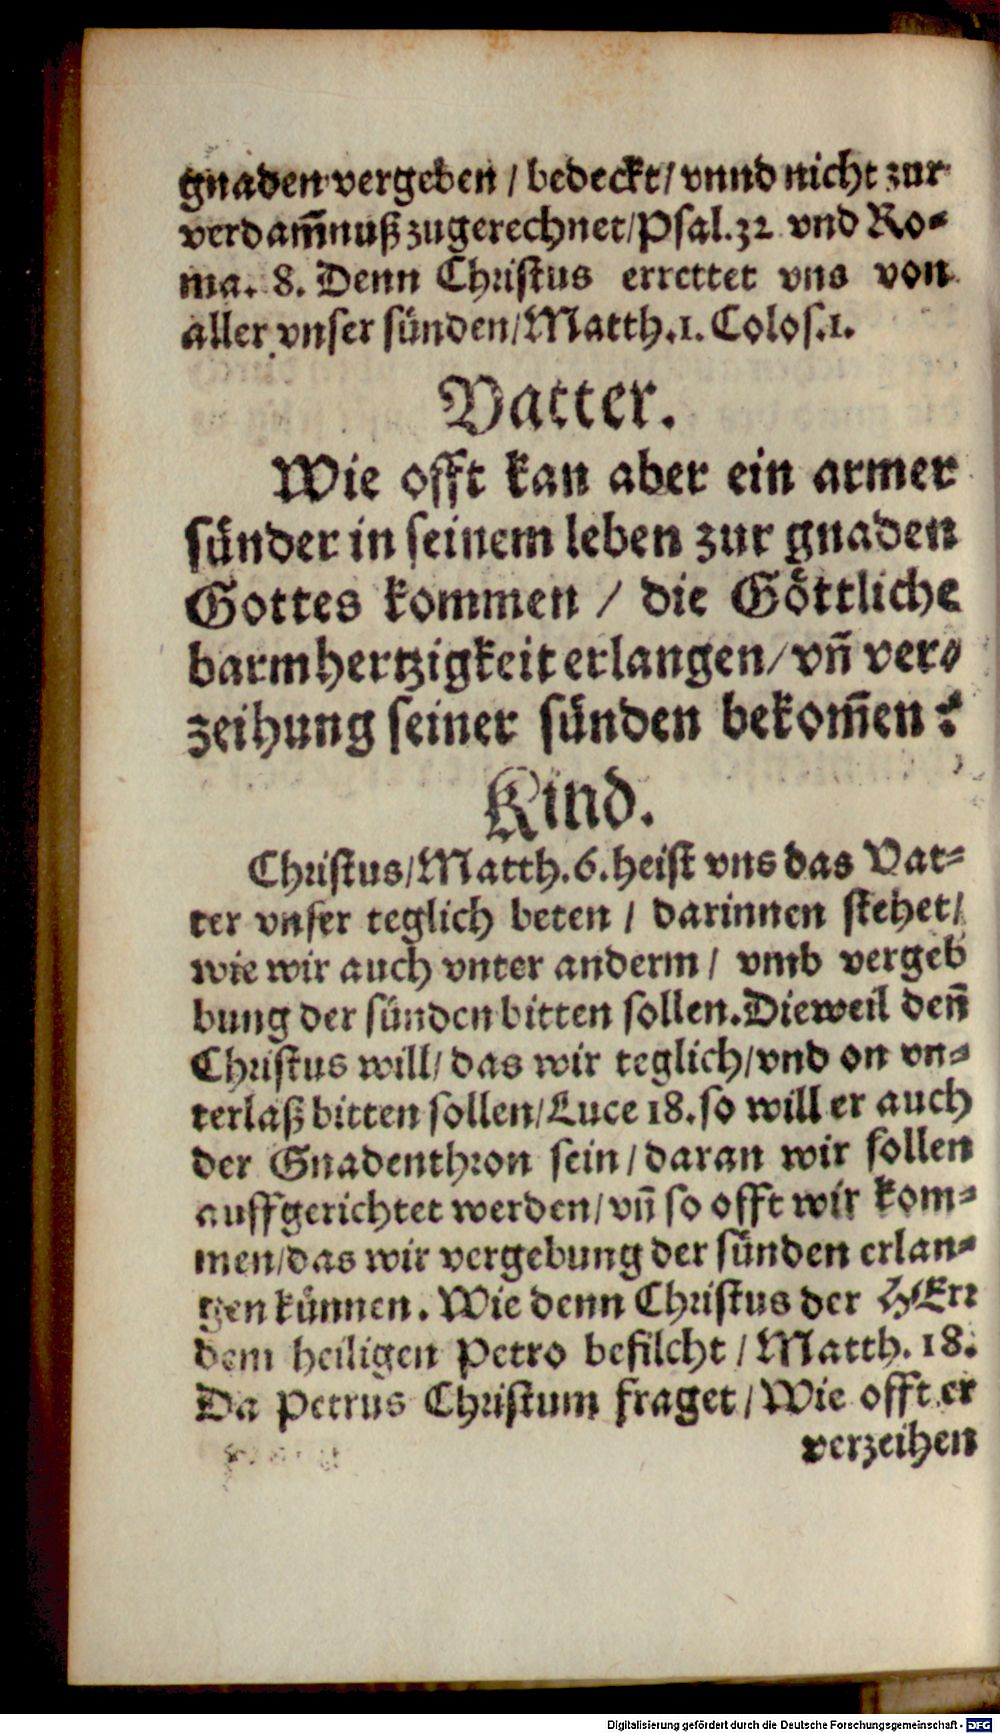 gnaden vergeben / bedeckt / vnnd nicht zur
verdam̄nuß zugerechnet / Psal. 32 vnd Ro-
ma. 8. Denn Christus errettet vns von
aller vnser sünden / Matth. 1. Colos. 1.
Vatter.
Wie offt kan aber ein armer
sünder in seinem leben zur gnaden
Gottes kommen / die Göttliche
barmhertzigkeit erlangen / vn̄ ver-
zeihung seiner sünden bekom̄en?
Kind.
Christus / Matth. 6. heist vns das Vat-
ter vnser teglich beten / darinnen stehet /
wie wir auch vnter anderm / vmb vergeb
bung der sünden bitten sollen. Dieweil den̄
Christus will / das wir teglich / vnd on vn-
terlaß bitten sollen / Luce 18. so will er auch
der Gnadenthron sein / daran wir sollen
auffgerichtet werden / vn̄ so offt wir kom-
men / das wir vergebung der sünden erlan-
gen künnen. Wie denn Christus der HErr
dem heiligen Petro befilcht / Matth. 18.
Da Petrus Christum fraget / Wie offt er
verzeihen
Digitalisierung gefördert durch die Deutsche Forschungsgemeinschaft - DFG